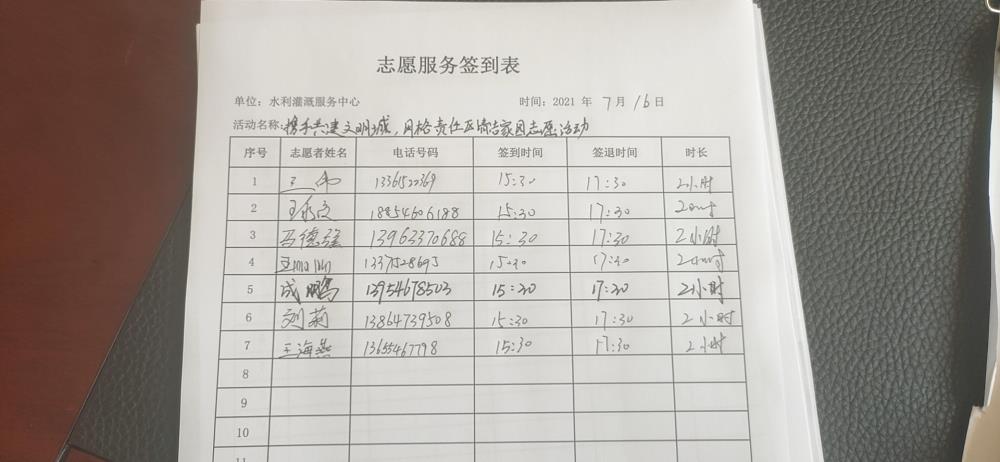 志愿服务签到表
单位：水利灌溉服务中心 时间：2021 年 7 月 16 日
活动名称：携手共建文明城，网格责任区清洁家园志愿活动
序号 志愿者姓名 电话号码 签到时间 签退时间 时长
1 15:30 17:30 2小时
2 18854606188 15:30 17:30 2小时
3 马德强 13963370688 15:30 17:30 2小时
4 15:30 17:30 2小时
5 成鹏 13954678503 15:30 17:30 2小时
6 刘莉 13864739508 15:30 17:30 2小时
7 王海燕 13655467798 15:30 17:30 2小时
8
9
10
11